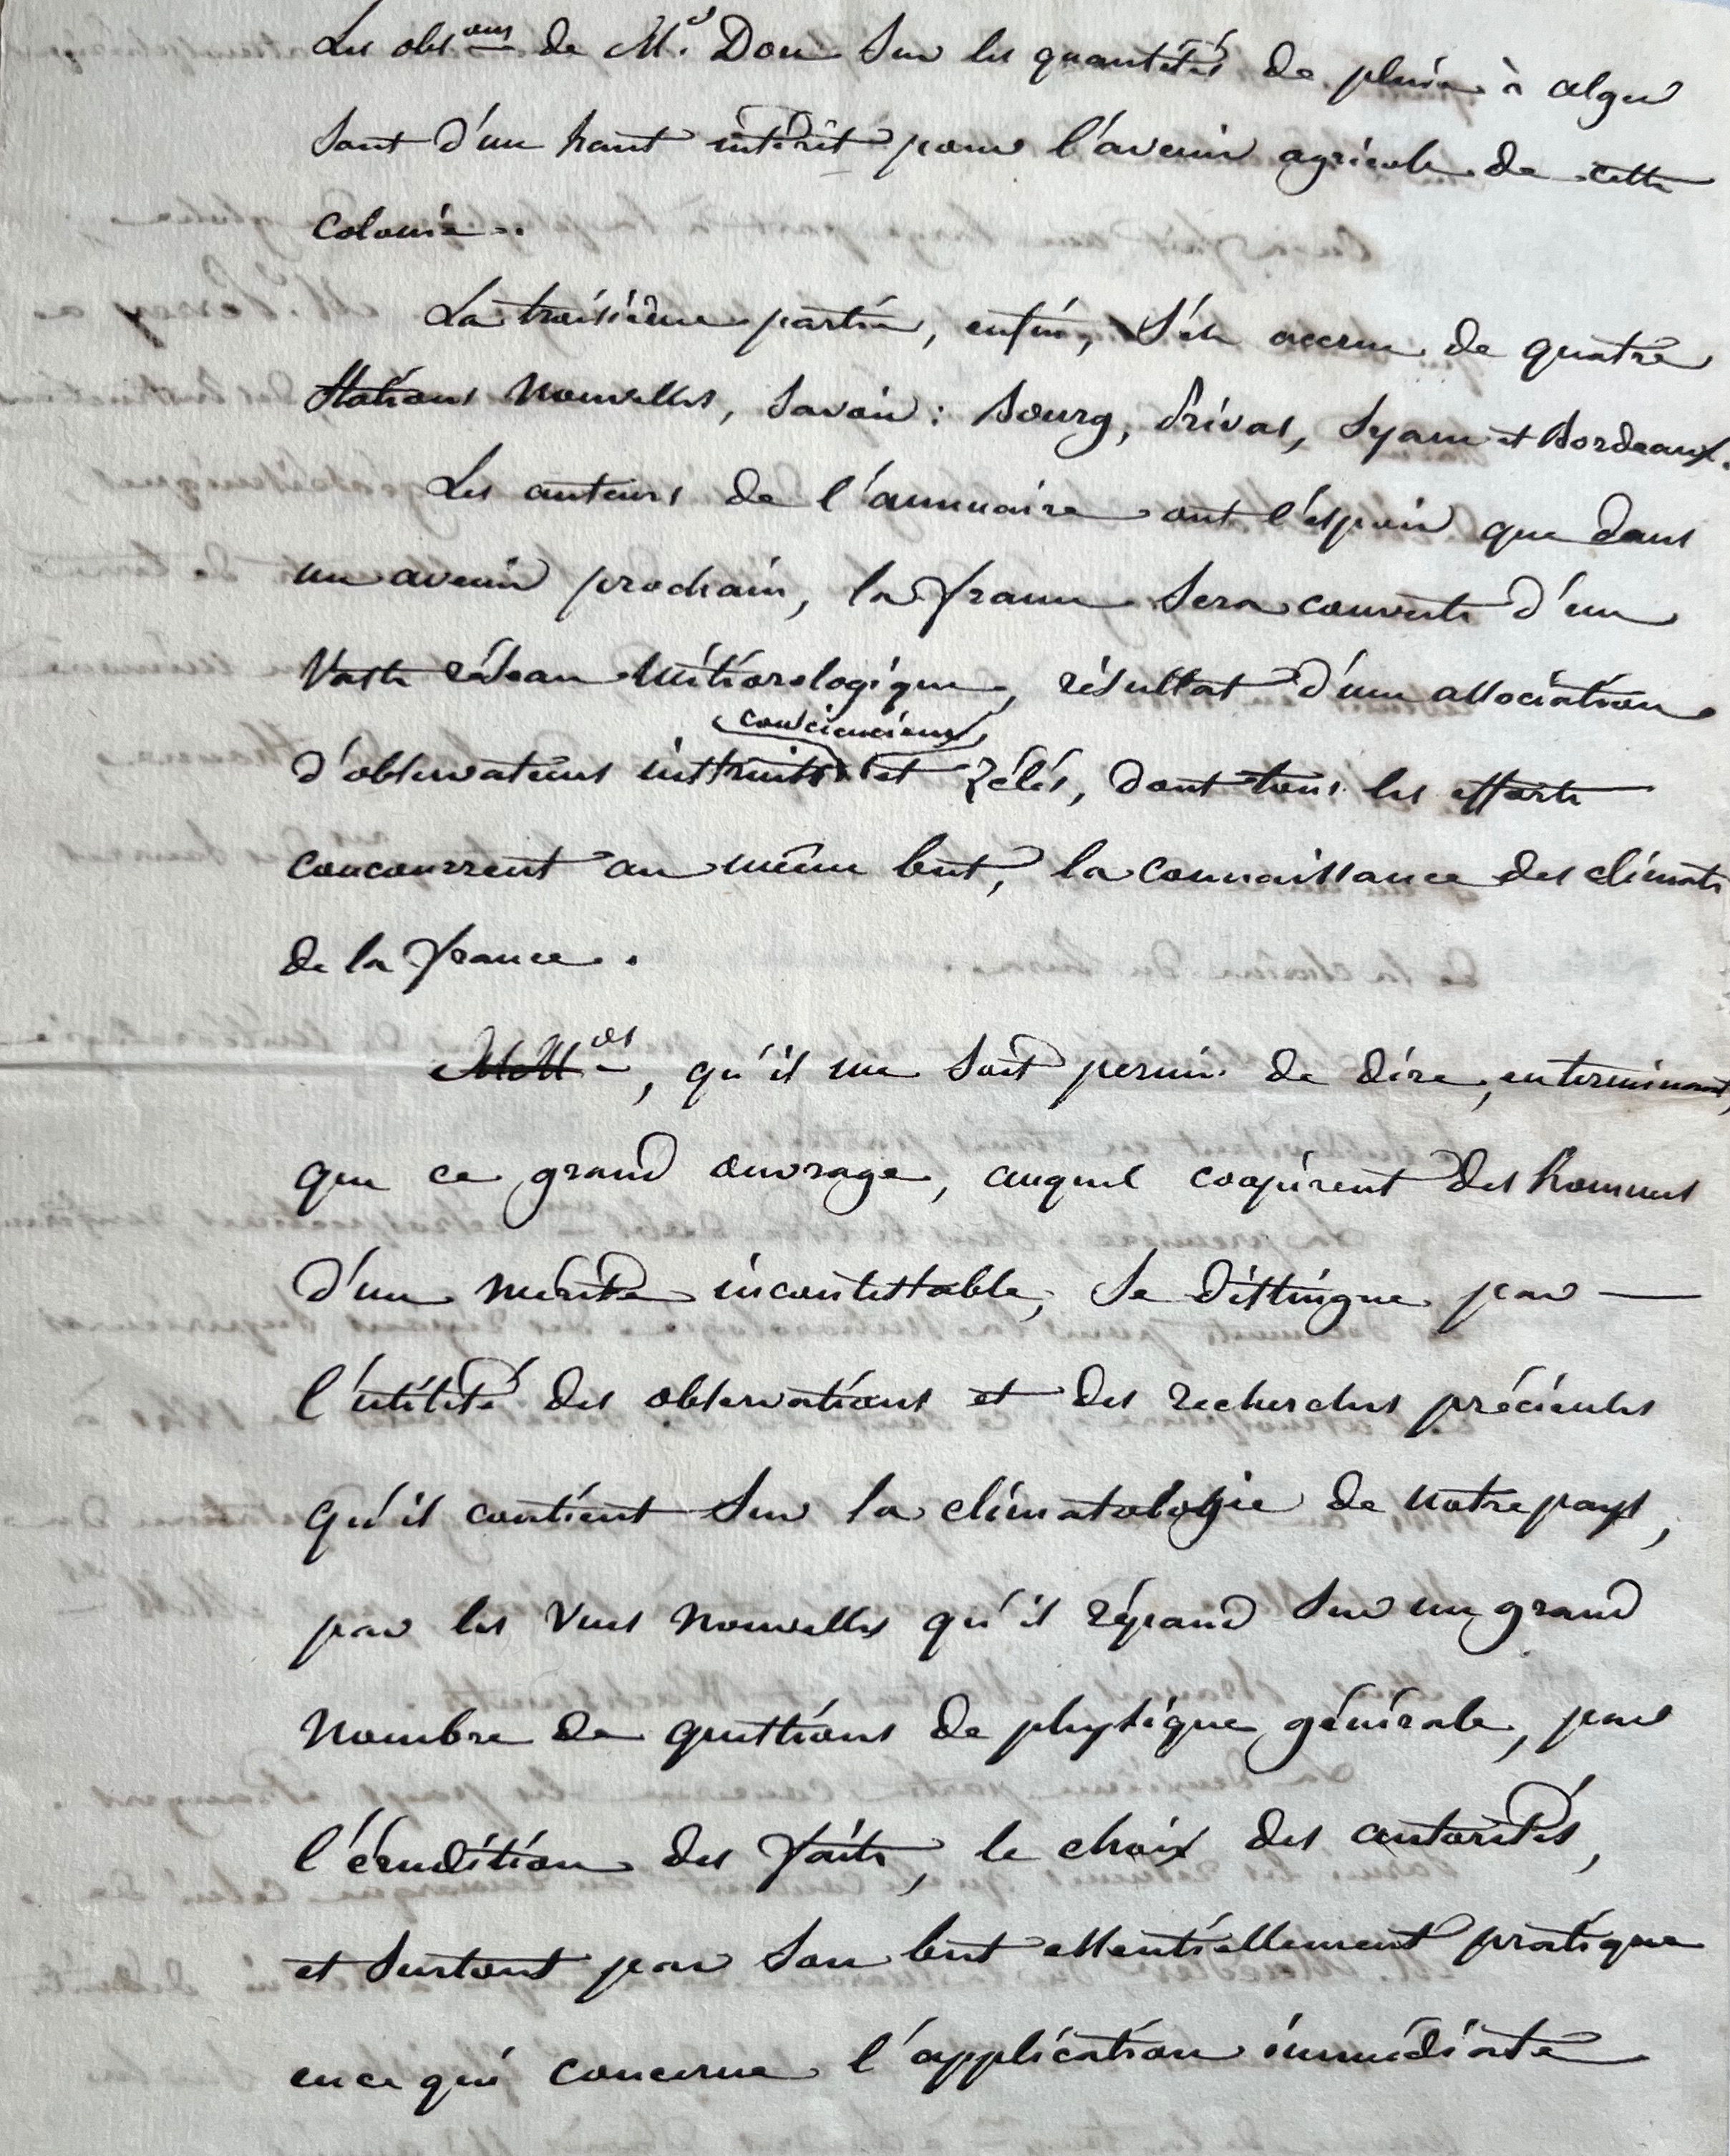 Les obs.ons de Mr. Don sur les quantités de pluie à alger
sont d'un haut intérêt pour l'avenir agricole de cette
colonie.
La troisième partie, enfin, s'est accrue de quatre
stations nouvelles, savoir : Bourg, Privas, Syam et Bordeaux.
Les auteurs de l'annuaire ont l'espoir que dans
un avenir prochain, la france sera couverte d'un
vaste réseau météorologique, résultat d'une association
consciencieux,
d'observateurs instruits et zélés, dont tous les efforts
concourrent au même but, la connaissance des climats
de la france.
, qu'il me soit permis de dire, en terminant,
que ce grand ouvrage, auquel coopèrent des hommes
d'un mérite incontestable, se distingue par
l'utilité des observations et des recherches précieuses
qu'il contient sur la climatologie de notre pays,
par les vues nouvelles qu'il répand sur un grand
nombre de questions de physique générale, par
l'érudition des faits, le choix des autorités,
et surtout par son but essentiellement pratique
en ce qui concerne l'application immédiate